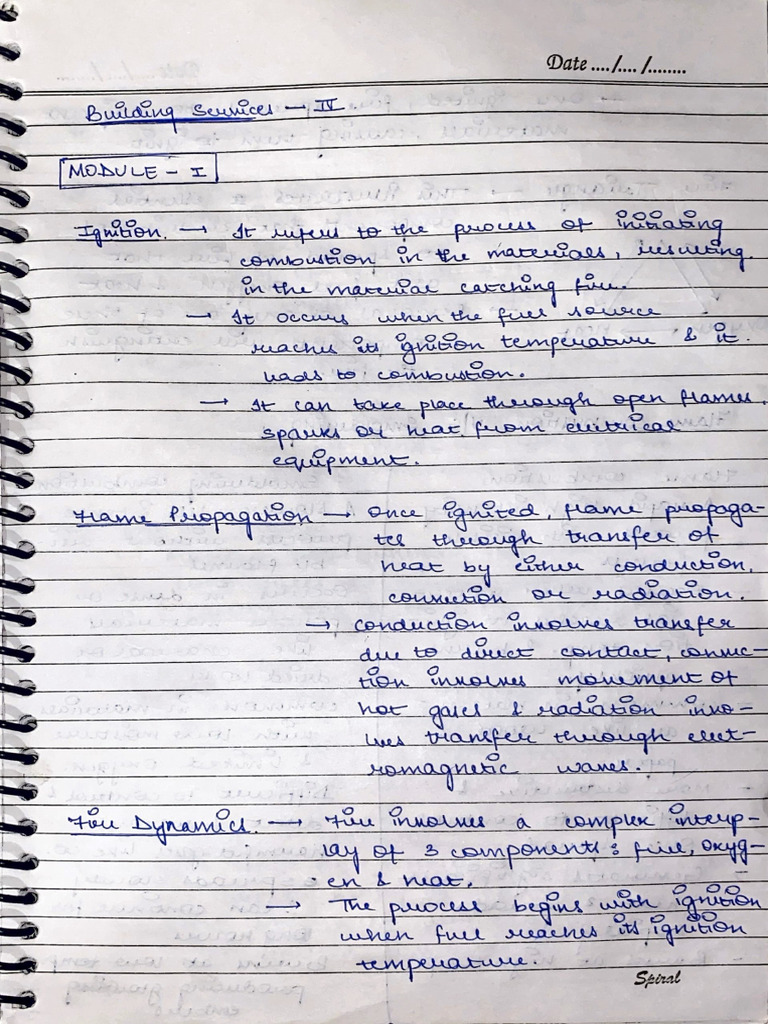 Date ..../..../........
Building Services - IV
MODULE - I
Ignition. → It refers to the process of initiating
combustion in the materials, resulting
in the material catching fire.
→ It occurs when the fuel source
reaches its ignition temperature & it
leads to combustion.
→ It can take place through open flames,
sparks or heat from electrical
equipment.
Flame Propagation → Once ignited, flame propaga-
tes through transfer of
heat by either conduction,
convection or radiation.
→ conduction involves transfer
due to direct contact, convec-
tion involves movement of
hot gases & radiation invo-
lves transfer through elect-
romagnetic waves.
Fire Dynamics. → Fire involves a complex interp-
lay of 3 components : fuel, oxyg-
en & heat.
→ The process begins with ignition
when fuel reaches its ignition
temperature.
Spiral